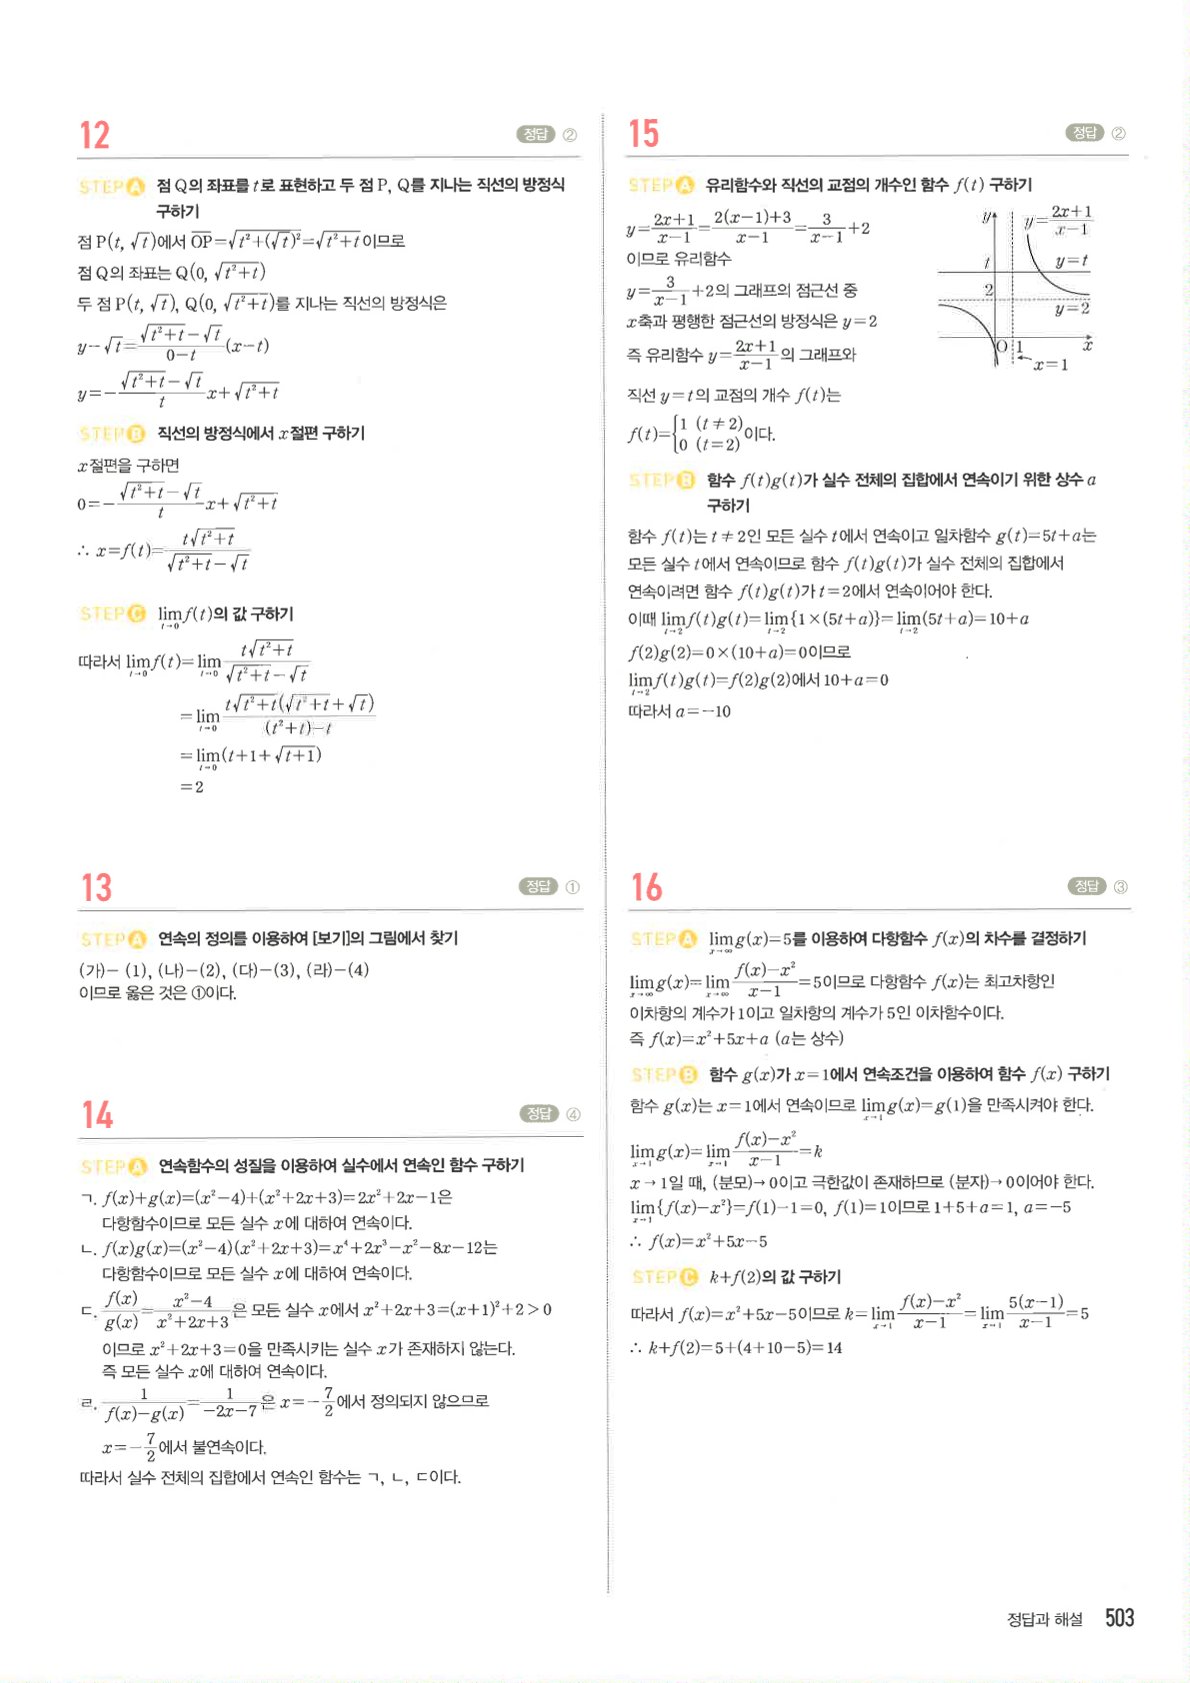 12
정답 ②
STEP A 점 Q의 좌표를 t로 표현하고 두 점 P, Q를 지나는 직선의 방정식
구하기
점 P(t, √t)에서 OP=√(t²+(√t)²)=√(t²+t)이므로
점 Q의 좌표는 Q(0, √(t²+t))
두 점 P(t, √t), Q(0, √(t²+t))를 지나는 직선의 방정식은
y-√t=(√(t²+t)-√t)/(0-t)(x-t)
y=-(√(t²+t)-√t)/t x+√(t²+t)
STEP B 직선의 방정식에서 x절편 구하기
x절편을 구하면
0=-(√(t²+t)-√t)/t x+√(t²+t)
∴ x=f(t)=t√(t²+t)/(√(t²+t)-√t)
STEP C lim t→0 f(t)의 값 구하기
따라서 lim t→0 f(t)=lim t→0 t√(t²+t)/(√(t²+t)-√t)
=lim t→0 t√(t²+t)(√(t²+t)+√t)/((t²+t)-t)
=lim t→0 (t+1+√(t+1))
=2
13
정답 ①
STEP A 연속의 정의를 이용하여 [보기]의 그림에서 찾기
(가)-(1), (나)-(2), (다)-(3), (라)-(4)
이므로 옳은 것은 ①이다.
14
정답 ④
STEP A 연속함수의 성질을 이용하여 실수에서 연속인 함수 구하기
ㄱ. f(x)+g(x)=(x²-4)+(x²+2x+3)=2x²+2x-1은
다항함수이므로 모든 실수 x에 대하여 연속이다.
ㄴ. f(x)g(x)=(x²-4)(x²+2x+3)=x⁴+2x³-x²-8x-12는
다항함수이므로 모든 실수 x에 대하여 연속이다.
ㄷ. f(x)/g(x)=(x²-4)/(x²+2x+3)은 모든 실수 x에서 x²+2x+3=(x+1)²+2>0
이므로 x²+2x+3=0을 만족시키는 실수 x가 존재하지 않는다.
즉 모든 실수 x에 대하여 연속이다.
ㄹ. 1/(f(x)-g(x))=1/(-2x-7)은 x=-7/2에서 정의되지 않으므로
x=-7/2에서 불연속이다.
따라서 실수 전체의 집합에서 연속인 함수는 ㄱ, ㄴ, ㄷ이다.
15
정답 ②
STEP A 유리함수와 직선의 교점의 개수인 함수 f(t) 구하기
y=(2x+1)/(x-1)=(2(x-1)+3)/(x-1)=3/(x-1)+2
이므로 유리함수
y=3/(x-1)+2의 그래프의 점근선 중
x축과 평행한 점근선의 방정식은 y=2
즉 유리함수 y=(2x+1)/(x-1)의 그래프와
직선 y=t의 교점의 개수 f(t)는
f(t)={1 (t≠2)
0 (t=2)이다.
y
y=(2x+1)/(x-1)
t
y=t
2
y=2
O
1
x
x=1
STEP B 함수 f(t)g(t)가 실수 전체의 집합에서 연속이기 위한 상수 a
구하기
함수 f(t)는 t≠2인 모든 실수 t에서 연속이고 일차함수 g(t)=5t+a는
모든 실수 t에서 연속이므로 함수 f(t)g(t)가 실수 전체의 집합에서
연속이려면 함수 f(t)g(t)가 t=2에서 연속이어야 한다.
이때 lim t→2 f(t)g(t)=lim t→2 {1×(5t+a)}=lim t→2 (5t+a)=10+a
f(2)g(2)=0×(10+a)=0이므로
lim t→2 f(t)g(t)=f(2)g(2)에서 10+a=0
따라서 a=-10
16
정답 ③
STEP A lim x→∞ g(x)=5를 이용하여 다항함수 f(x)의 차수를 결정하기
lim x→∞ g(x)=lim x→∞ (f(x)-x²)/(x-1)=5이므로 다항함수 f(x)는 최고차항인
이차항의 계수가 1이고 일차항의 계수가 5인 이차함수이다.
즉 f(x)=x²+5x+a (a는 상수)
STEP B 함수 g(x)가 x=1에서 연속조건을 이용하여 함수 f(x) 구하기
함수 g(x)는 x=1에서 연속이므로 lim x→1 g(x)=g(1)을 만족시켜야 한다.
lim x→1 g(x)=lim x→1 (f(x)-x²)/(x-1)=k
x→1일 때, (분모)→0이고 극한값이 존재하므로 (분자)→0이어야 한다.
lim x→1 {f(x)-x²}=f(1)-1=0, f(1)=1이므로 1+5+a=1, a=-5
∴ f(x)=x²+5x-5
STEP C k+f(2)의 값 구하기
따라서 f(x)=x²+5x-5이므로 k=lim x→1 (f(x)-x²)/(x-1)=lim x→1 5(x-1)/(x-1)=5
∴ k+f(2)=5+(4+10-5)=14
정답과 해설 503